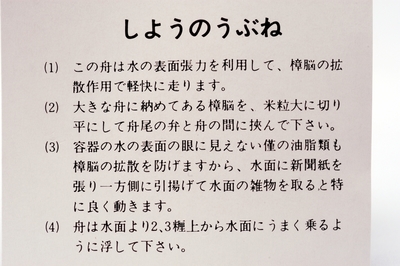 しようのうぶね
(1) この舟は水の表面張力を利用して、樟脳の拡
散作用で軽快に走ります。
(2) 大きな舟に納めてある樟脳を、米粒大に切り
平にして舟尾の弁と舟の間に挟んで下さい。
(3) 容器の水の表面の眼に見えない僅の油脂類も
樟脳の拡散を防げますから、水面に新聞紙を
張り一方側に引揚げて水面の雑物を取ると特
に良く動きます。
(4) 舟は水面より2、3糎上から水面にうまく乗るよ
うに浮して下さい。